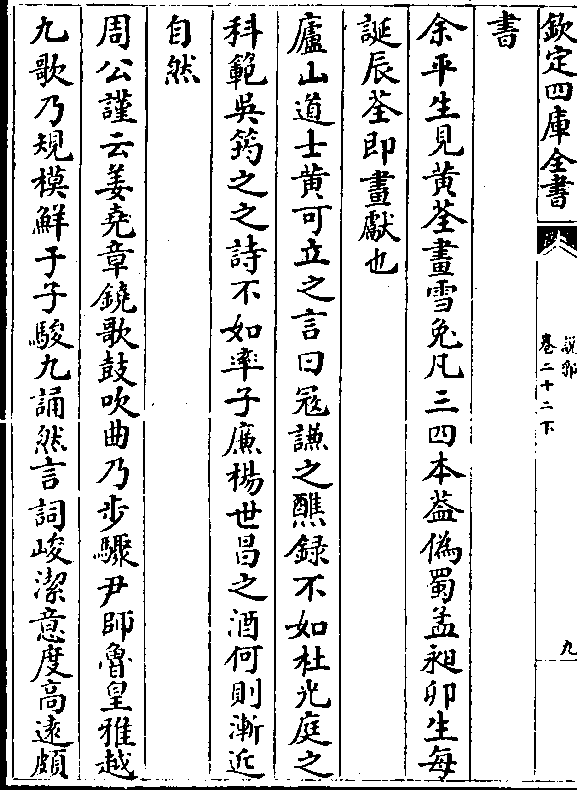 欽定四庫全書
說郛
卷二十二下
九
書
余平生見黄荃畫雪兔凡三四本葢僞蜀孟昶卯生每
誕辰荃即畫獻也
廬山道士黄可立之言曰冦謙之醮録不如杜光庭之
科範吳筠之之詩不如率子廉楊世昌之酒何則漸近
自然
周公謹云姜堯章鐃歌鼓吹曲乃步驟尹師魯皇雅越
九歌乃規模鮮于子駿九誦然言詞峻潔意度高遠頗